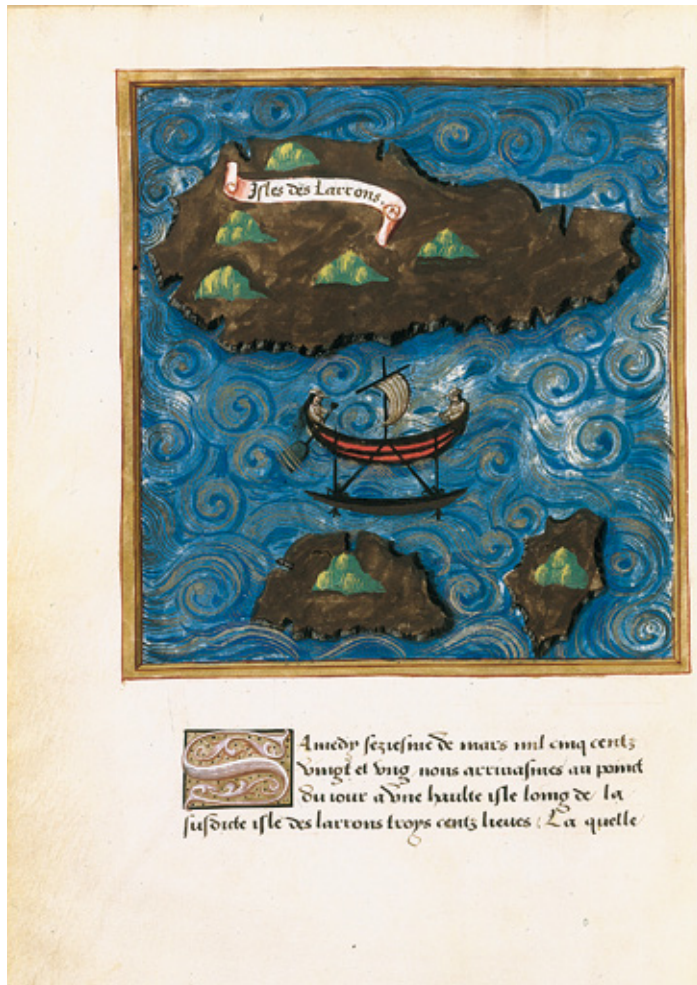 Isles des Larrons.
Samedy seziesme de mars mil cinq centz
vingt et vng nous arriuasmes au poinct
du iour a vne haulte isle loing de la
susdicte isle des larrons troys centz lieues : La quelle